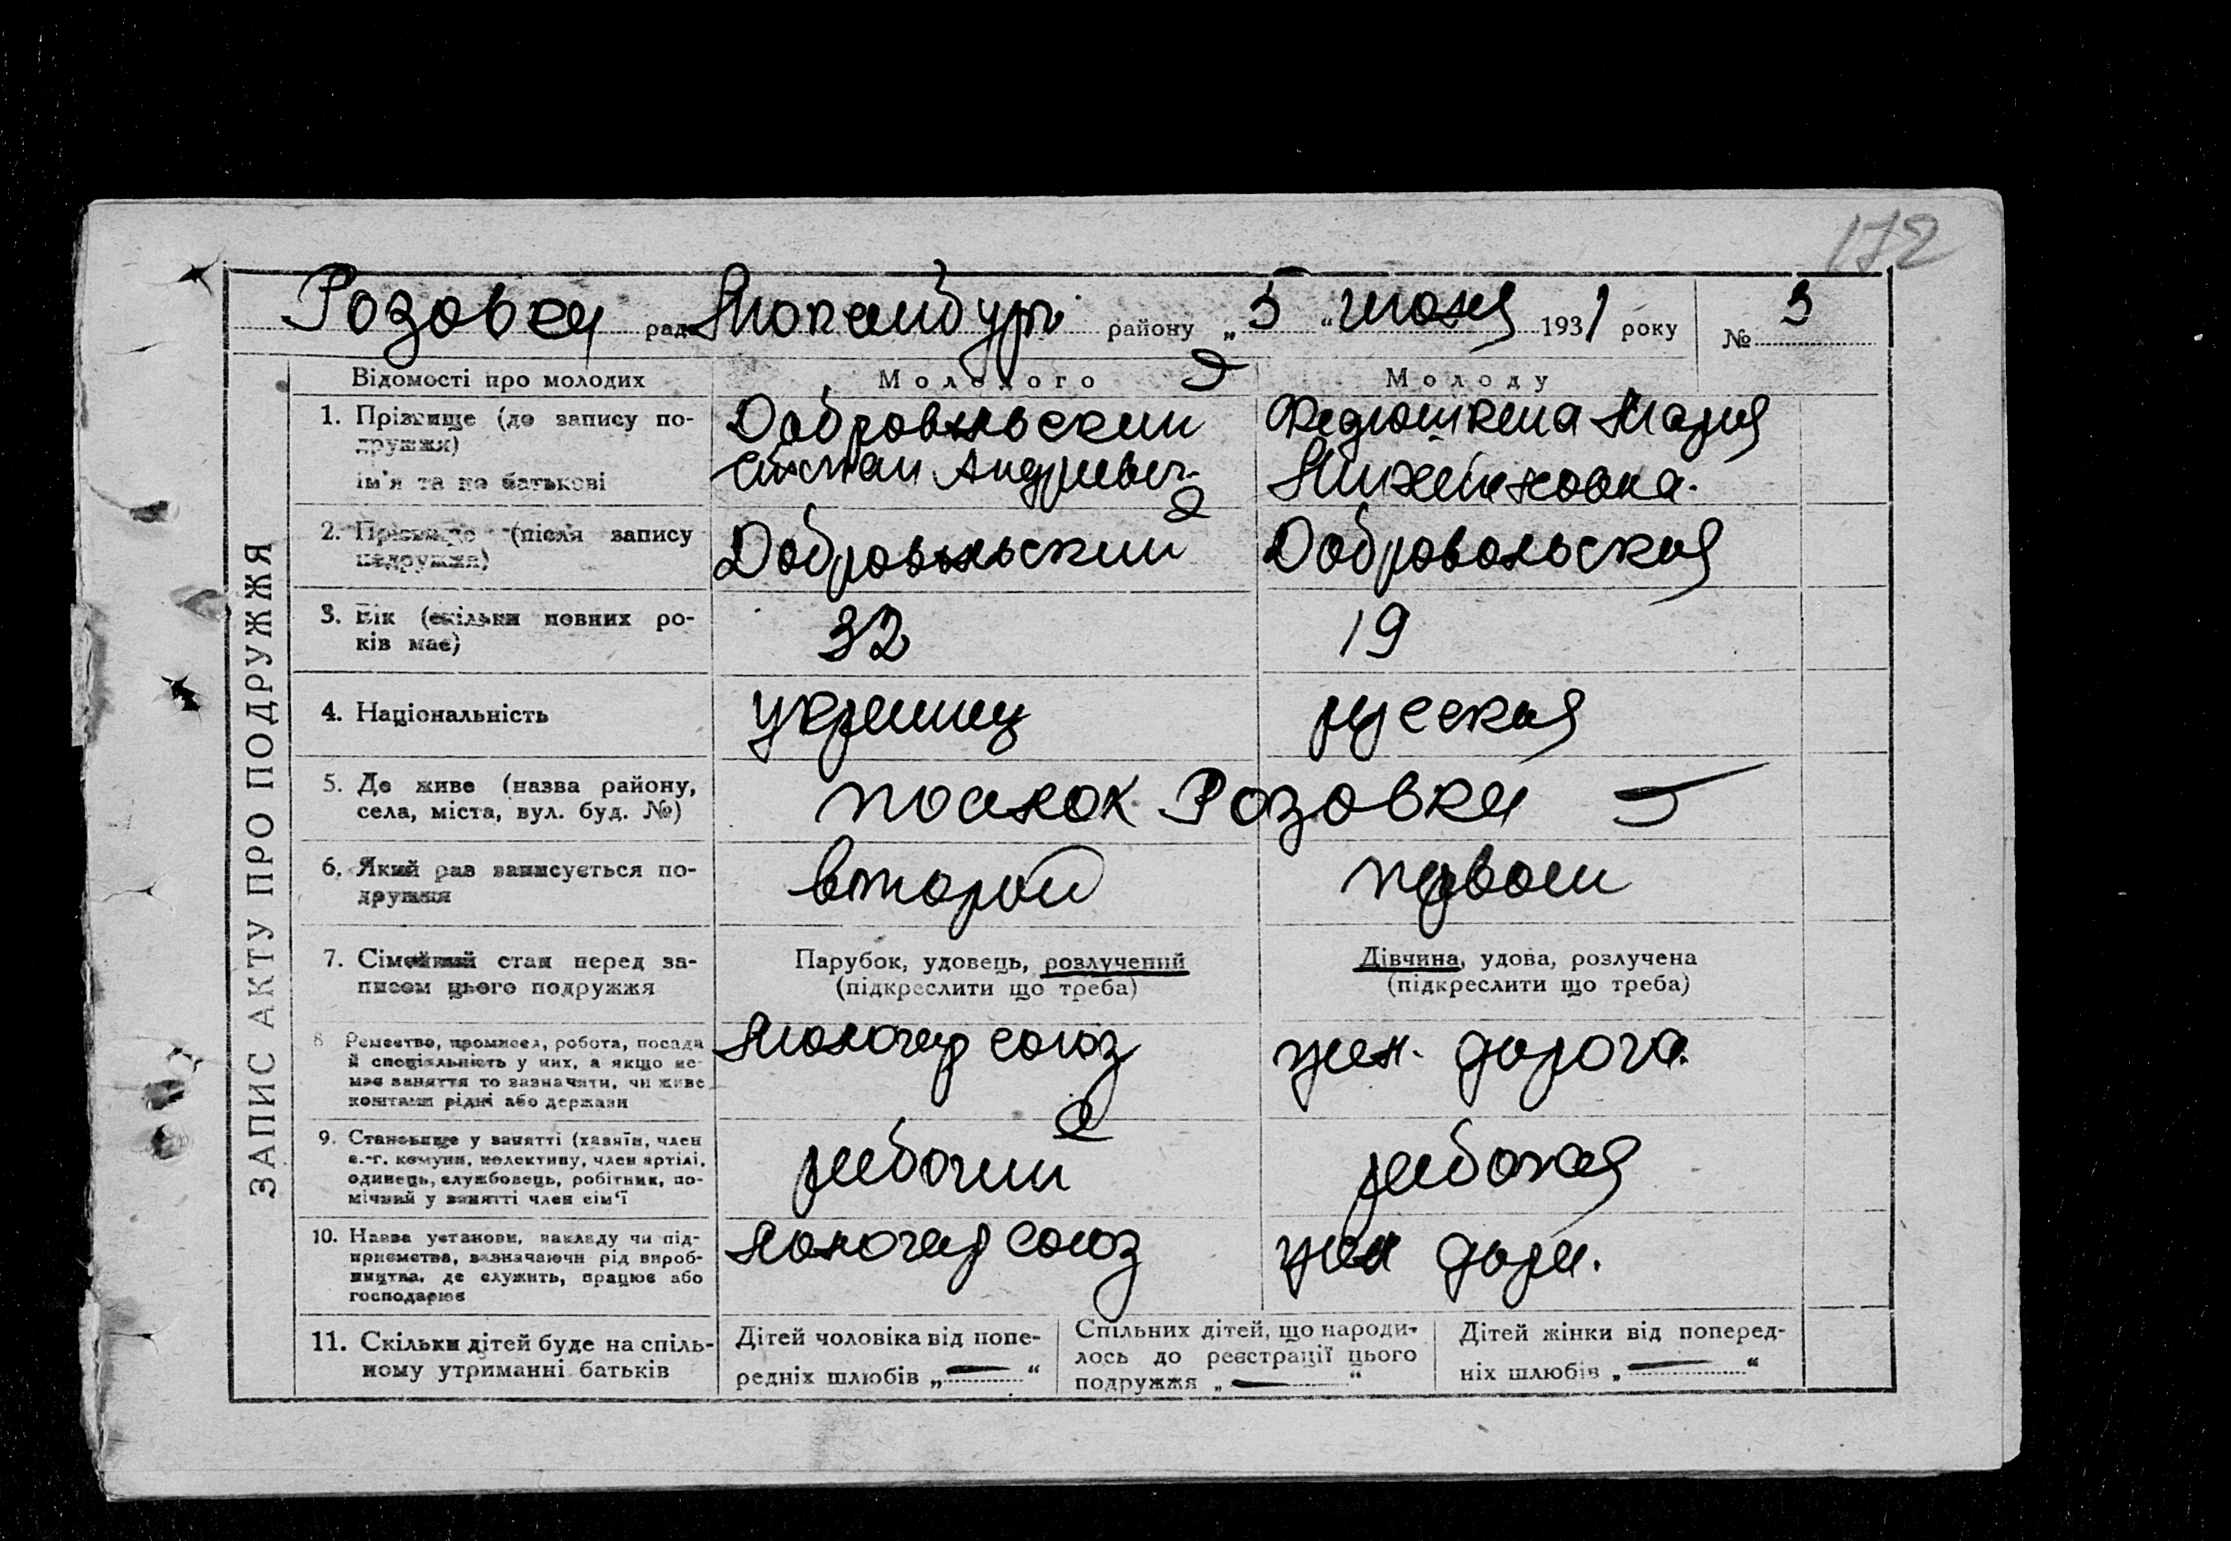 172
Розовка рада Люксембург району „5“ июня 1931 року № 3
ЗАПИС АКТУ ПРО ПОДРУЖЖЯ
Відомості про молодих Молодого Молоду
1. Прізвище (до запису по-
дружжя)
ім'я та по батькові
Добровольский
Степан Андреевич
Федюшкина Мария
2. Прізвище (після запису
подружжя)
Добровольский
Добровольская
3. Вік (скільки повних ро-
ків має)
32
19
4. Національність
украинец
русская
5. Де живе (назва району,
села, міста, вул. буд. №)
Розовка
6. Який раз записується по-
дружжя
второй
первый
7. Сімейний стан перед за-
писом цього подружжя
Парубок, удовець, розлучений
(підкреслити що треба)
Дівчина, удова, розлучена
(підкреслити що треба)
8 Ремество, промисел, робота, посада
й спеціяльність у них, а якщо не-
має заняття то зазначити, чи живе
коштами рідні або держави
Молочар союз
жел. дорога.
9. Становище у занятті (хазяїн, член
с.-г. комуни, колективу, член артілі,
одинець, службовець, робітник, по-
мічний у занятті член сім'ї
рабочий
рабочая
10. Назва установи, закладу чи під-
приємства, зазначаючи рід вироб-
ництва, де служить, працює або
господарює
Молочар союз
жел доро.
11. Скільки дітей буде на спіль-
ному утриманні батьків
Дітей чоловіка від попе-
редніх шлюбів „—“
Спільних дітей, що народи-
лось до реєстрації цього
подружжя „—“
Дітей жінки від поперед-
ніх шлюбів „—“